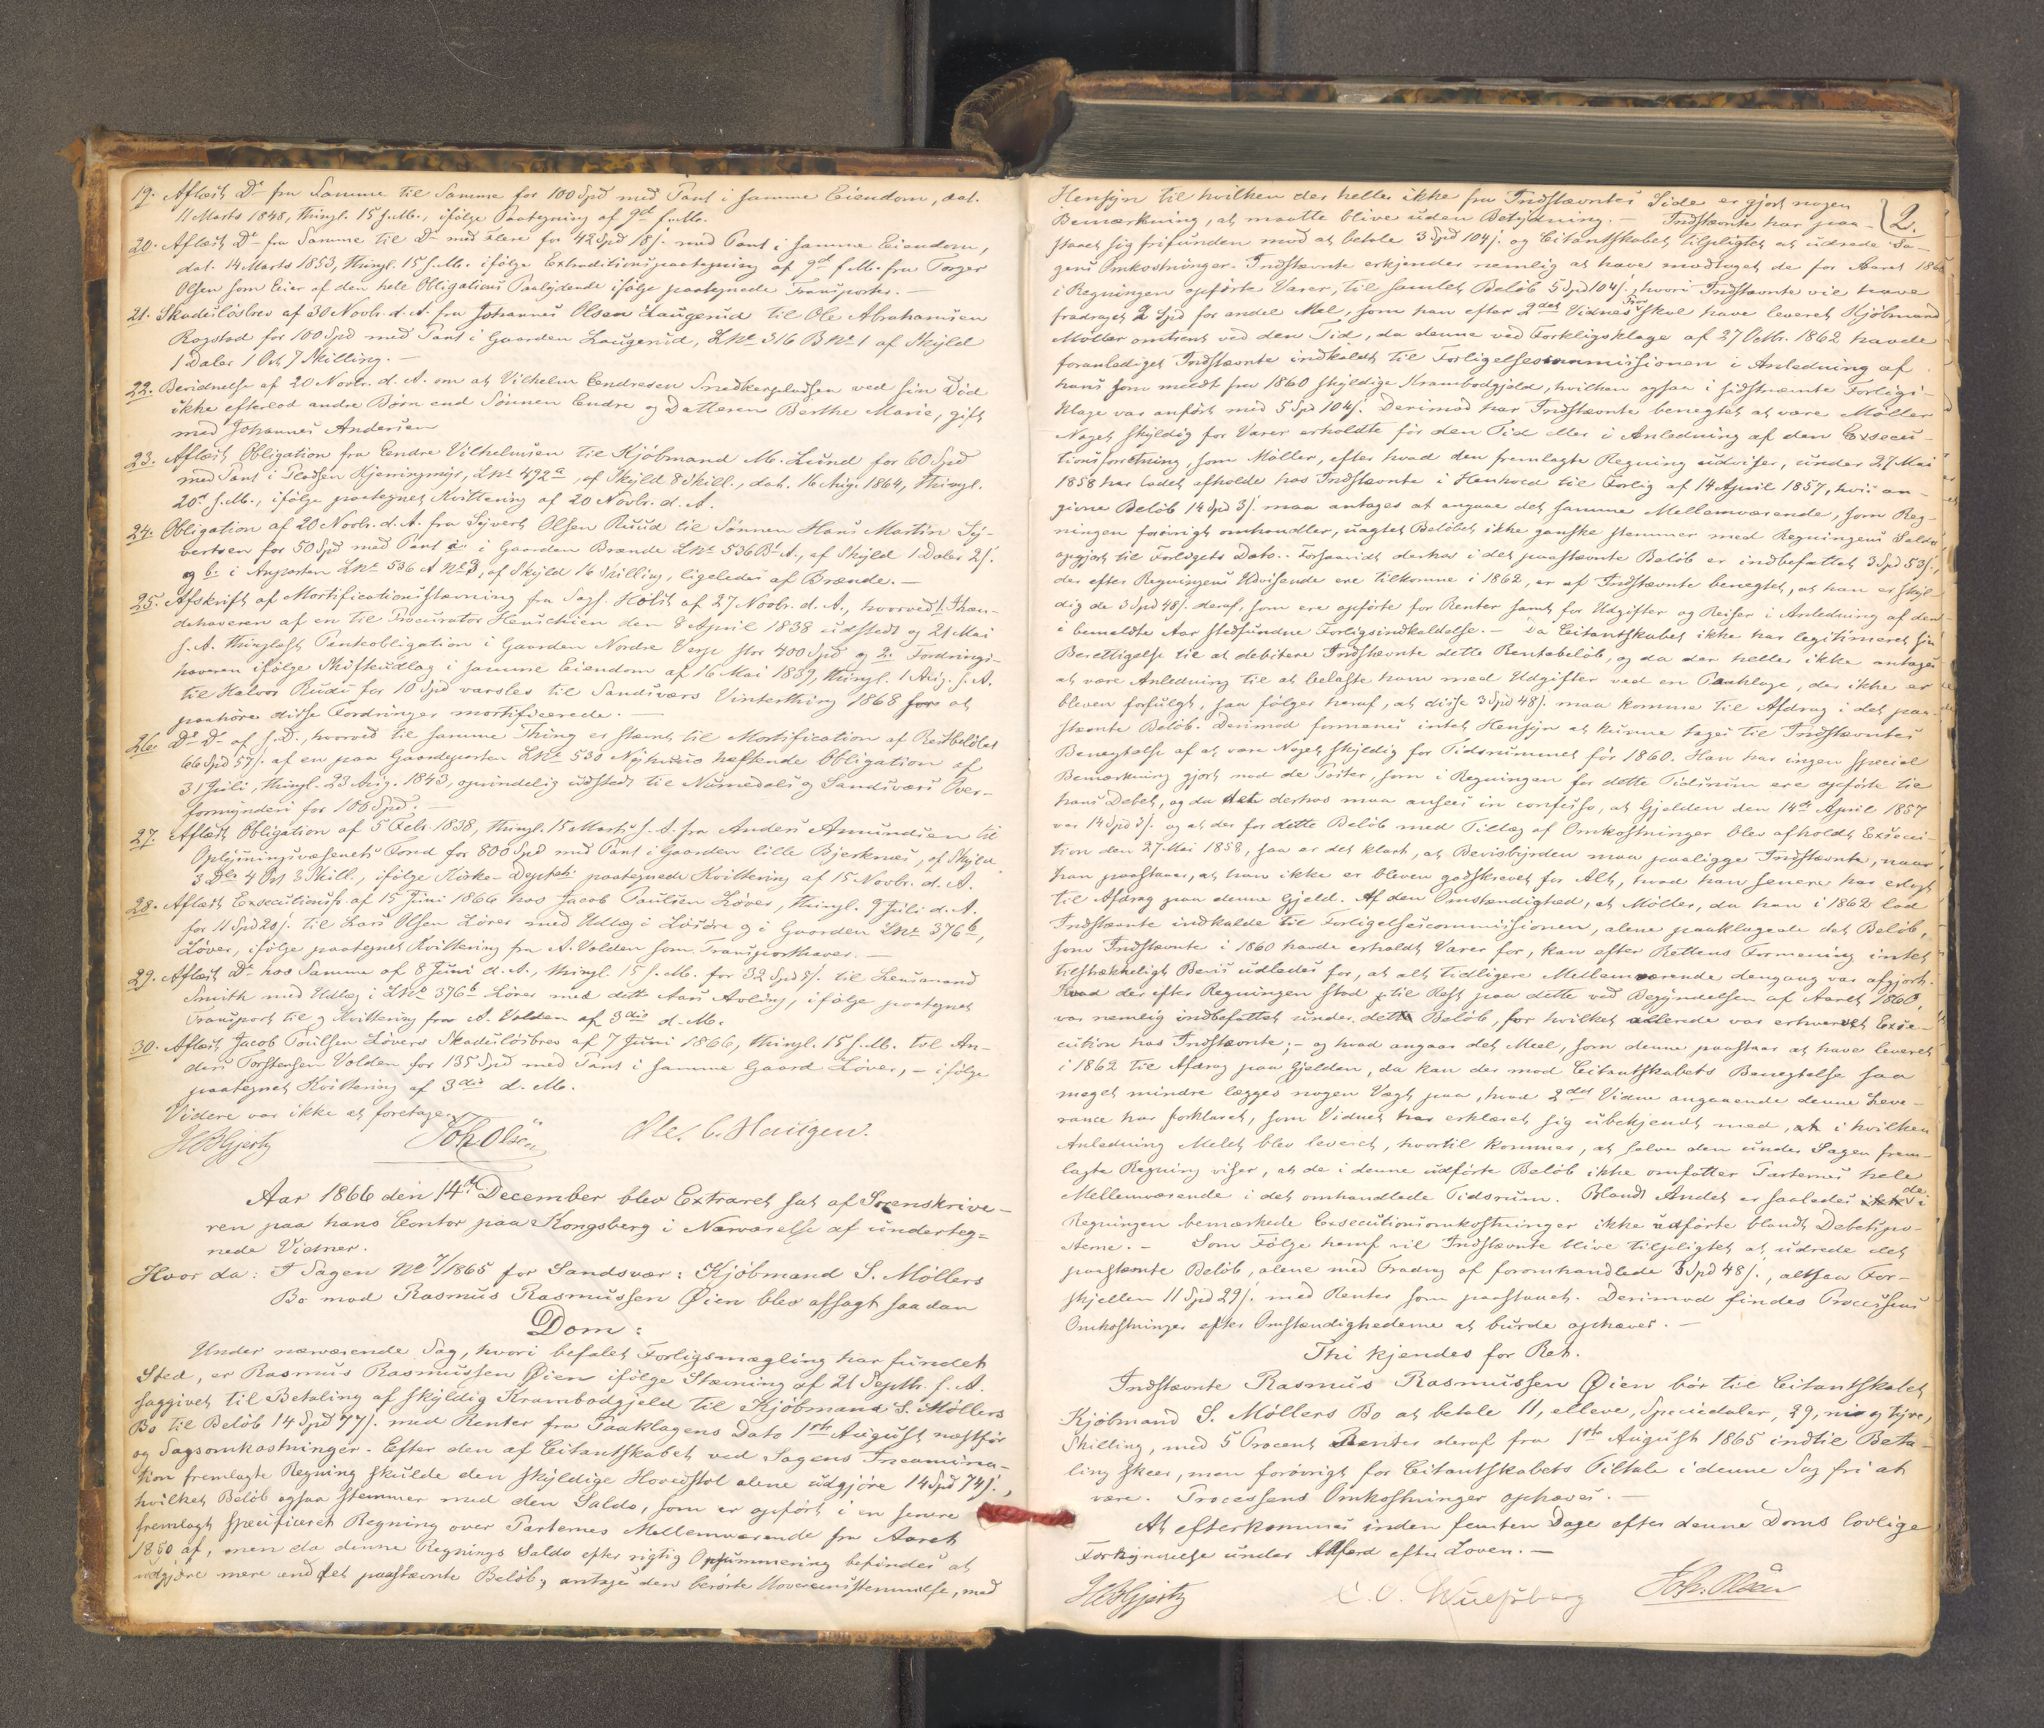 19. Aflæst Do fra Samme til Samme for 100 Spd med Pant i samme Eiendom, dat.
11 Marts 1848, thingl. 15 s. M., ifølge Paategning af 9de f. M.
20. Aflæst Do fra Samme til Do med Flere for 42 Spd 18 s. med Pant i samme Eiendom,
dat. 14 Marts 1853, thingl. 15 s. M. ifølge Extraditionspaategning af 9de f. M. fra Torger
Olsen som Eier af den hele Obligations Paalydende ifølge paategnede Transporter. —
21. Skadesløsbrev af 30 Novbr. d. A. fra Johannes Olsen Laugerud til Ole Abrahamsen
Rogstad for 100 Spd med Pant i Gaarden Laugerud, LNo 316 B No 1 af Skyld
1 Daler 1 Ort 7 Skilling. —
22. Bevidnelse af 20 Novbr. d. A. om at Vilhelm Endresen Snedkerpladsen ved sin Død
ikke efterlod andre Børn end Sønnen Endre og Datteren Berthe Marie, gift
med Johannes Andersen
23. Aflæst Obligation fra Endre Vilhelmsen til Kjøbmand M. Lund for 60 Spd
med Pant i Pladsen Hjerringmyr, LNo 492a, af Skyld 8 Skill., dat. 16 Aug. 1864, thingl.
20de s. M., ifølge paategnet Kvittering af 20 Novbr. d. A.
24. Obligation af 20 Novbr. d. A. fra Syvert Olsen Ruud til Sønnen Hans Martin Sy-
vertsen for 50 Spd med Pant a: i Gaarden Brænde LNo 536 B A., af Skyld 1 Daler 2 s.
og b: i Anparten LNo 536 A No 3, af Skyld 16 Skilling, ligeledes af Brænde. —
25. Afskrift af Mortificationsstævning fra Sagf. Holst af 27 Novbr. d. A., hvorved 1. Ihæn-
dehaveren af en til Procurator Heuschien den 8 April 1838 udstedt og 21 Mai
s. A. thinglæst Panteobligation i Gaarden Nordre Verje stor 400 Spd og 2. Fordrings-
haveren ifølge Skifteudlag i samme Eiendom af 16 Mai 1839, thingl. 1 Aug. s. A.
til Halvor Rudi for 10 Spd varsles til Sandsværs Vinterthing 1868 for at
paahøre disse Fordringer mortificerede. —
26. Do Do af s. D., hvorved til samme Thing er stævnt til Mortification af Restbeløbet
66 Spd 57 s. af en paa Gaardeparten LNo 530 Nyhuus heftende Obligation af
31 Juli, thingl. 23 Aug. 1843, oprindelig udstedt til Numedals og Sandsværs Over-
formynderi for 100 Spd. —
27. Aflæst Obligation af 5 Febr. 1838, thingl. 15 Marts s. A. fra Anders Amundsen til
Oplysningsvæsenets Fond for 800 Spd med Pant i Gaarden lille Bjerknæs, af Skyld
3 Dlr 4 Ort 3 Skill., ifølge Kirke-Deptets paategnede Kvittering af 15 Novbr. d. A.
28. Aflæst Executionsf. af 15 Juni 1866 hos Jacob Paulsen Løver, thingl. 9 Juli d. A.
for 11 Spd 20 s. til Lars Olsen Løver med Udlæg i Løsøre og i Gaarden LNo 376b,
Løver, ifølge paategnet Kvittering fra A. Volden som Transporthaver. —
29. Aflæst Do hos Samme af 8 Juni d. A., thingl. 15 s. M. for 32 Spd 8 s. til Lensmand
Smith med Udlæg i LNo 376b Løver med dette Aars Avling, ifølge paategnet
Transport til og Kvittering fra A. Volden af 3die d. M.
30. Aflæst Jacob Poulsen Løvers Skadesløsbrev af 7 Juni 1866, thingl. 15 s. M. til An-
ders Torstensen Volden for 135 Spd med Pant i samme Gaard Løver, — ifølge
paategnet Kvittering af 3die d. M.
Videre var ikke at foretage.
HBGjertz Joh Olsen Ole C. Haugen.
Aar 1866 den 14de December blev Extraret sat af Sorenskrive-
ren paa hans Contor paa Kongsberg i Nærværelse af underteg-
nede Vidner.
Hvor da: I Sagen No 7/1865 for Sandsvær: Kjøbmand S. Møllers
Bo mod Rasmus Rasmussen Øien blev afsagt saadan
Dom:
Under nærværende Sag, hvori befalet Forligsmægling har fundet
Sted, er Rasmus Rasmussen Øien ifølge Stævning af 21 Septbr. f. A.
saggivet til Betaling af skyldig Krambodgjeld til Kjøbmand S. Møllers
Bo til Beløb 14 Spd 77 s. med Renter fra Paaklagens Dato 1ste August næstfør
og Sagsomkostninger. Efter den af Citantskabet ved Sagens Incamina-
tion fremlagte Regning skulde den skyldige Hovedstol alene udgjøre 14 Spd 74 s.,
hvilket Beløb ogsaa stemmer med den Saldo, som er opført i en senere
fremlagt specificeret Regning over Parternes Mellemværende fra Aaret
1850 af, men da denne Regnings Saldo efter rigtig Opsummering befindes at
udgjøre mere end det paastævnte Beløb, antages den berørte Uoverensstemmelse, med
2.
Hensyn til hvilken der heller ikke fra Indstævntes Side er gjort nogen
Bemærkning, at maatte blive uden Betydning. — Indstævnte har paa-
staaet sig frifunden mod at betale 3 Spd 104 s. og Citantskabet tilpligtet at udrede Sa-
gens Omkostninger. Indstævnte erkjender nemlig at have modtaget de for Aaret 186
i Regningen opførte Varer, til samlet Beløb 5 Spd 104 s., hvori Indstævnte vil have
fradraget 2 Spd for endel Mel, som han efter 2det Vidnes Forkl. skal have leveret Kjøbmand
Møller omtrent ved den Tid, da denne ved Forligsklage af 27 Octbr. 1862 havde
foranlediget Indstævnte indkaldt til Forligelsescommissionen i Anledning af
hans som meldt fra 1860 skyldige Krambodgjeld, hvilken ogsaa i sidstnævnte Forligs-
klage var anført med 5 Spd 104 s. Derimod har Indstævnte benegtet at være Møller
Noget skyldig for Varer erholdte før den Tid eller i Anledning af den Execu-
tionsforretning, som Møller, efter hvad den fremlagte Regning udviser, under 27 Mai
1858 har ladet afholde hos Indstævnte i Henhold til Forlig af 14 April 1857, hvis an-
givne Beløb 14 Spd 3 s. maa antages at angaae det samme Mellemværende, som Reg-
ningen forøvrigt omhandler, uagtet Beløbet ikke ganske stemmer med Regningens Saldo
opgjort til Forligets Dato. Forsaavidt derhos i det paastævnte Beløb er indbefattet 3 Spd 53 s.,
der efter Regningens Udvisende ere tilkomne i 1862, er af Indstævnte benegtet, at han er skyl-
dig de 3 Spd 48 s. deraf, som ere opførte for Renter samt for Udgifter og Reiser i Anledning af den
i bemeldte Aar stedfundne Forligsindkaldelse. — Da Citantskabet ikke har legitimeret sin
Berettigelse til at debitere Indstævnte dette Rentebeløb, og da der heller ikke antages
at være Anledning til at belaste ham med Udgifter ved en Paaklage, der ikke er
bleven forfulgt, saa følger heraf, at disse 3 Spd 48 s. maa komme til Afdrag i det paa-
stævnte Beløb. Derimod formenes intet Hensyn at kunne tages til Indstævntes
Benegtelse af at være Noget skyldig for Tidsrummet før 1860. Han har ingen special
Bemærkning gjort mod de Poster, som i Regningen for dette Tidsrum ere opførte til
hans Debet, og da det derhos maa ansees in confesso, at Gjelden den 14de April 1857
var 14 Spd 3 s. og at der for dette Beløb med Tillæg af Omkostninger blev afholdt Execu-
tion den 27 Mai 1858, saa er det klart, at Bevisbyrden maa paaligge Indstævnte, naar
han paastaaer, at han ikke er bleven godskrevet for Alt, hvad han senere har erlagt
til Afdrag paa denne Gjeld. Af den Omstændighed, at Møller, da han i 1862 lod
Indstævnte indkalde til Forligelsescommissionen, alene paaklagede det Beløb,
som Indstævnte i 1860 havde erholdt Varer for, kan efter Rettens Formening intet
tilstrækkeligt Beviis udledes for, at alt tidligere Mellemværende dengang var afgjort.
Hvad der efter Regningen stod til Rest paa dette ved Begyndelsen af Aaret 1860,
var nemlig indbefattet under dette Beløb, for hvilket allerede var erhvervet Exse-
cution hos Indstævnte; — og hvad angaar det Meel, som denne paastaar at have leveret
i 1862 til Afdrag paa Gjelden, da kan der mod Citantskabets Benegtelse saa
meget mindre lægges nogen Vægt paa, hvad 2det Vidne angaaende denne Leve-
rance har forklaret, som Vidnet har erklæret sig ubekjendt med, i hvilken
Anledning Melet blev leveret, hvortil kommer, at selve den under Sagen frem-
lagte Regning viser, at de i denne udførte Beløb ikke omfatter Parternes hele
Mellemværende i det omhandlede Tidsrum. Blandt Andet er saaledes de i
Regningen bemærkede Executionsomkostninger ikke udførte blandt Debetspo-
sterne. — Som Følge heraf vil Indstævnte blive tilpligtet at udrede det
paastævnte Beløb, alene med Fradrag af foromhandlede 3 Spd 48 s., altsaa For-
skjellen 11 Spd 29 s. med Renter som paastaaet. Derimod findes Processens
Omkostninger efter Omstændighederne at burde ophæves. —
Thi kjendes for Ret.
Indstævnte Rasmus Rasmussen Øien bør til Citantskabet
Kjøbmand S. Møllers Bo at betale 11, elleve, Speciedaler, 29, ni og tyve,
Skilling, med 5 Procent Renter deraf fra 1ste August 1865 indtil Beta-
ling skeer, men forøvrigt for Citantskabets Tiltale i denne Sag fri at
være. Processens Omkostninger ophæves. —
At efterkommes inden femten Dage efter denne Doms lovlige
Forkyndelse under Adfærd efter Loven. —
HBGjertz C. O. Wulfsberg Joh. Olsen